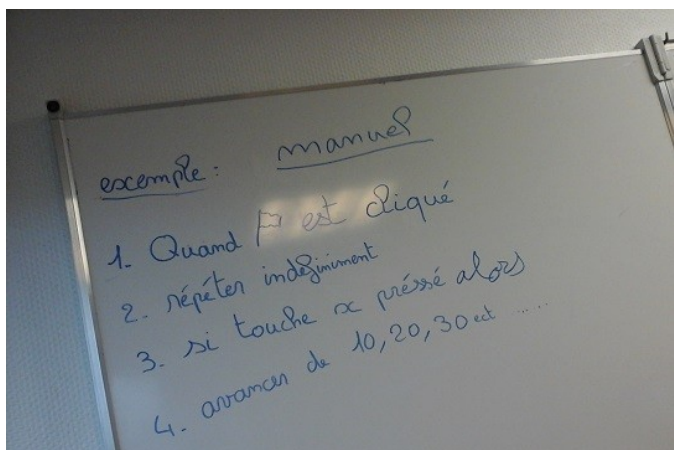 exemple : manuel
1. Quand est cliqué
2. répéter indéfiniment
3. si touche x préssé alors
4. avancer de 10, 20, 30 ect .....